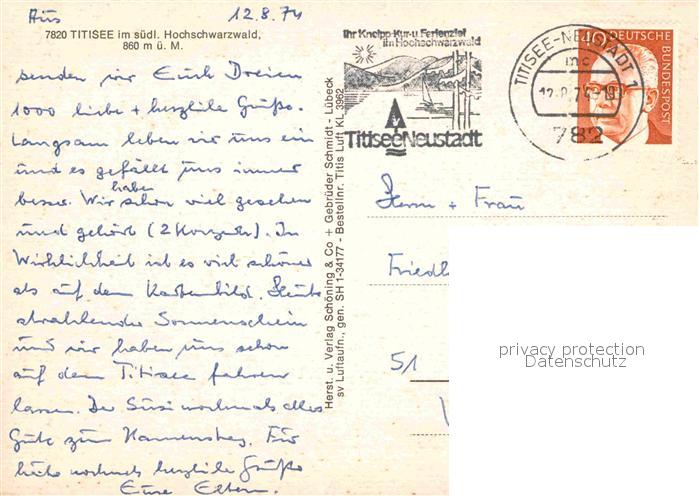 Aus 12.8.74
7820 TITISEE im südl. Hochschwarzwald,
860 m ü. M.
senden wir Euch Dreien
1000 liebe + herzliche Grüße.
Langsam leben wir uns ein
und es gefällt uns immer
besser. Wir haben schon viel gesehen
und gehört (2 Konzerte). In
Wirklichkeit ist es viel schöner
als auf dem Kartenbild. Heute
strahlender Sonnenschein
und wir haben uns schon
auf dem Titisee fahren
lassen. Der Susi nochmals alles
Gute zum Namenstag. Für
heute nochmals herzliche Grüße
Eure Eltern.
Herst. u. Verlag Schöning & Co + Gebrüder Schmidt - Lübeck
sv Luftaufn., gen. SH 1-34177 - Bestellnr. Titis Luft KL 3962
Ihr Kneipp-Kur-u. Ferienziel
im Hochschwarzwald
Titisee Neustadt
TITISEE-NEUSTADT 1
mc
12.8.74-18
782
40 DEUTSCHE
BUNDESPOST
Herrn + Frau
Friedl
51
privacy protection
Datenschutz